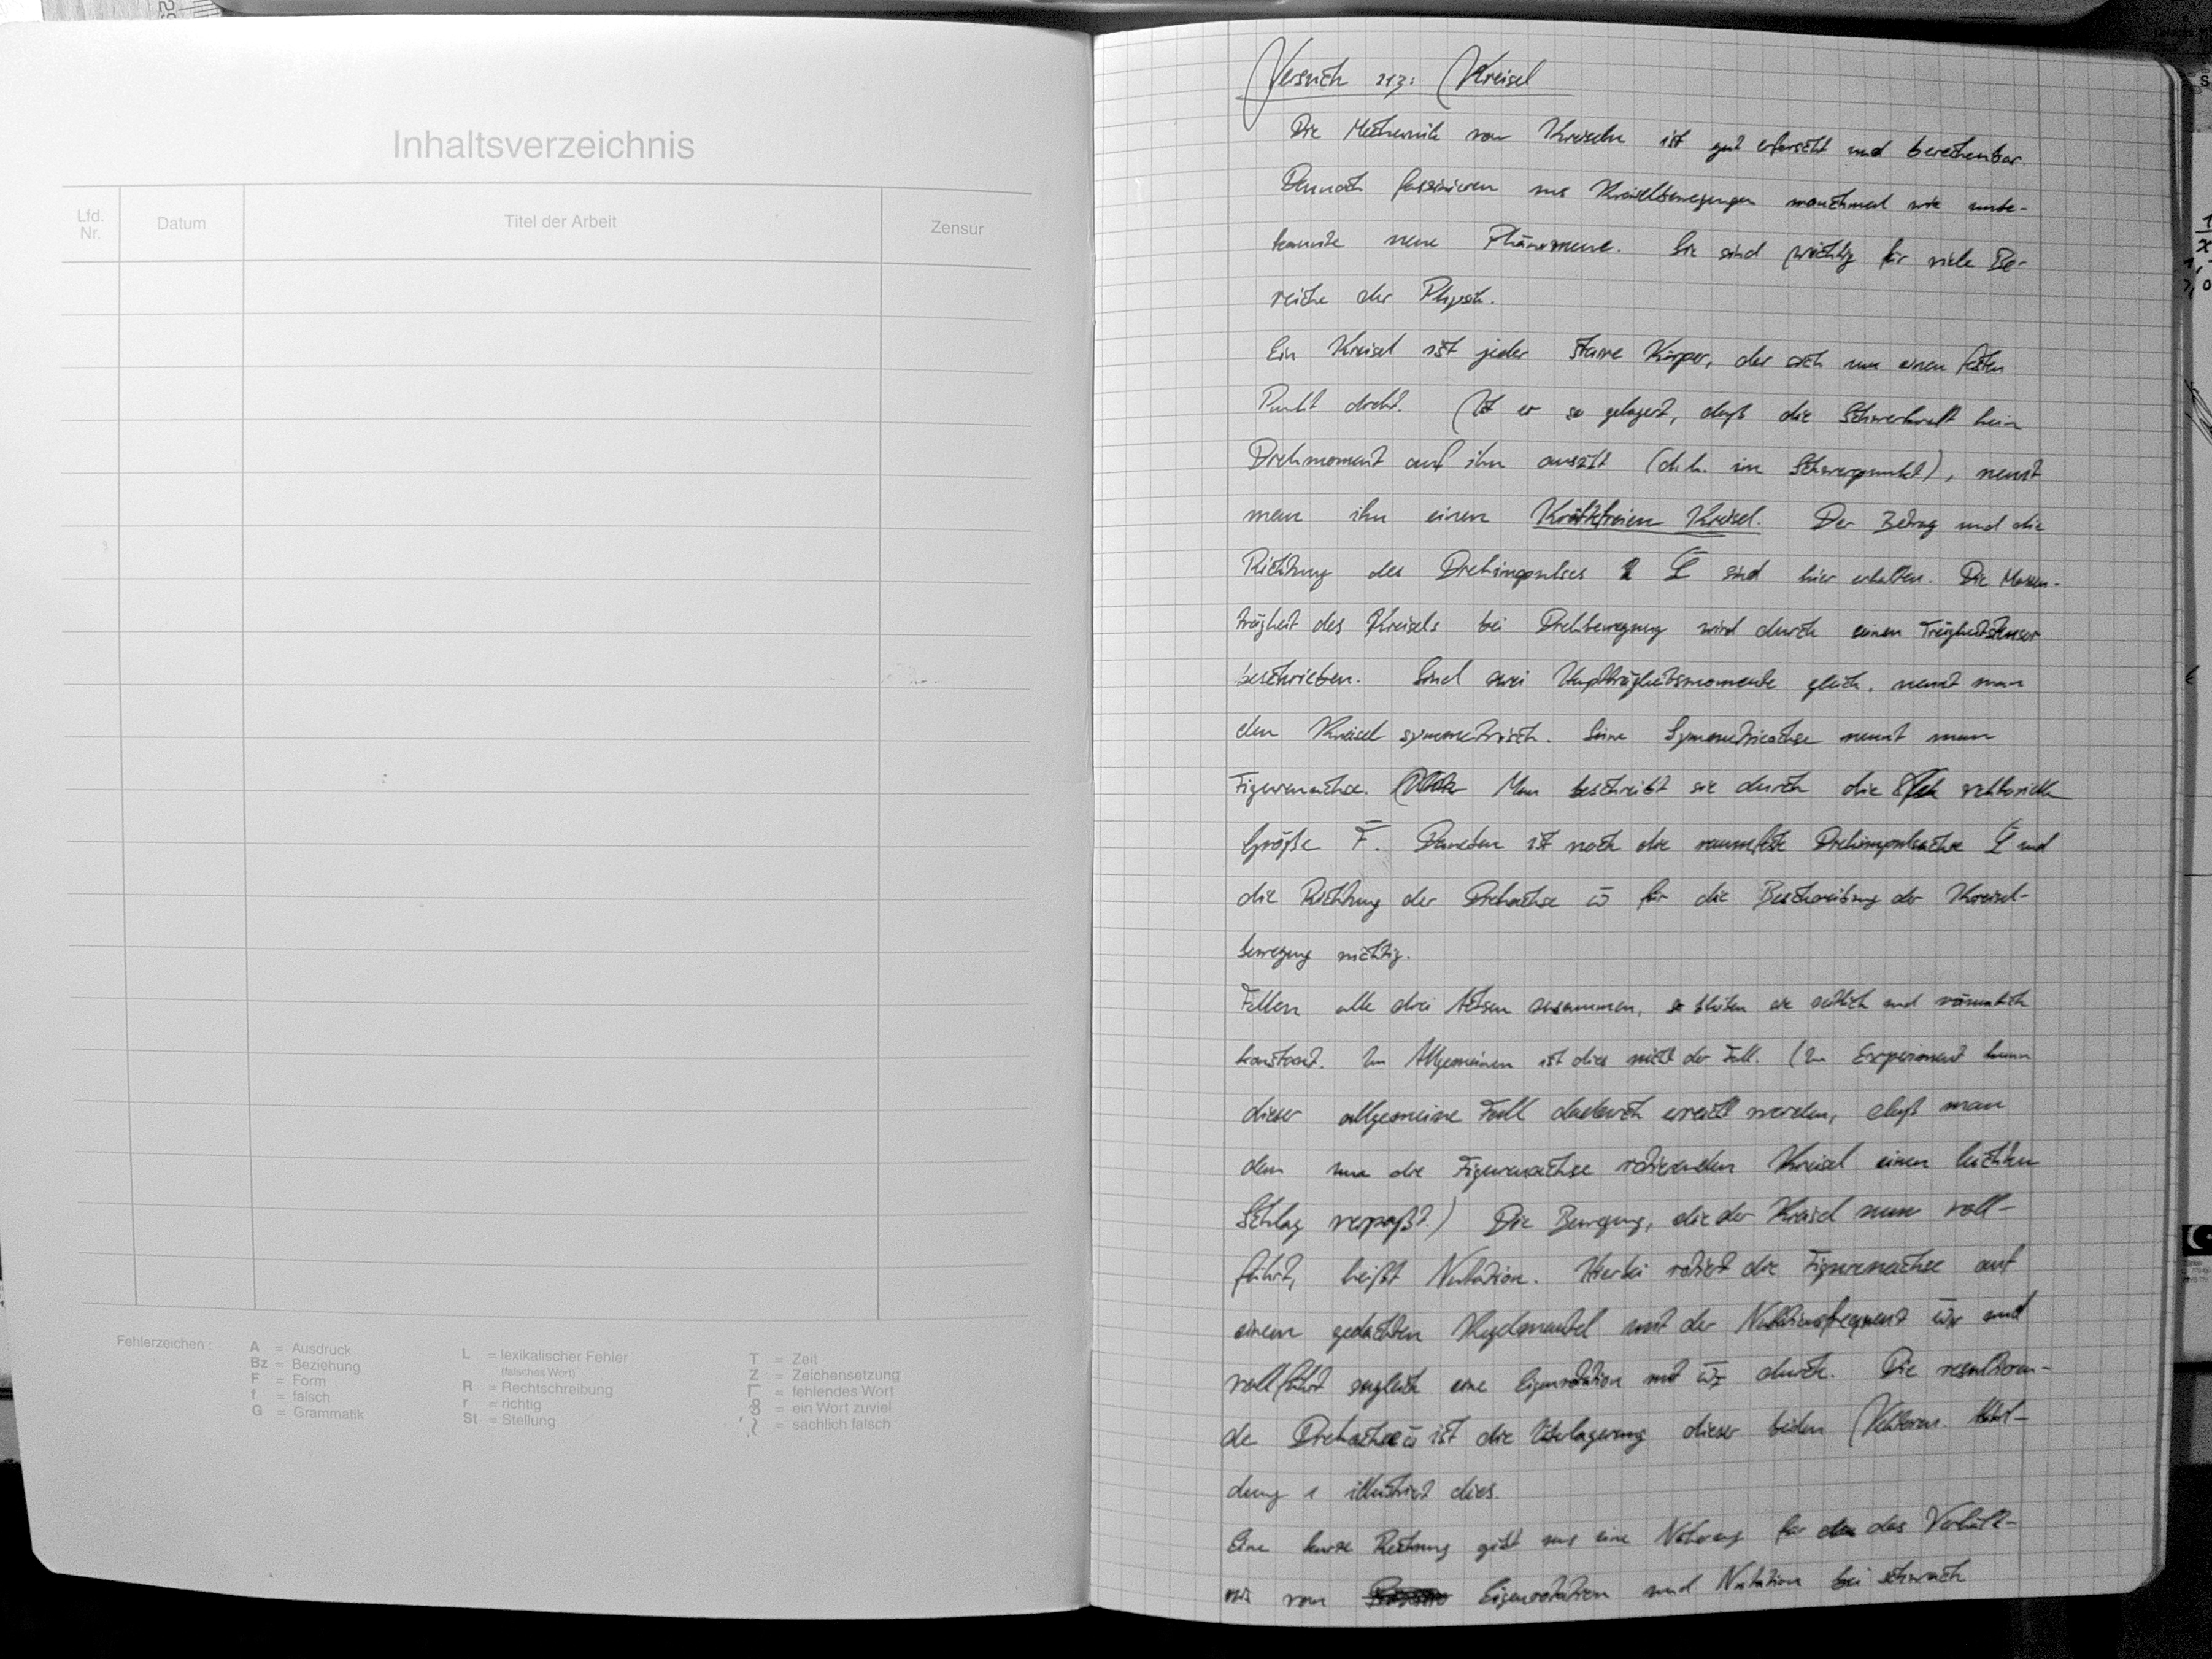 Inhaltsverzeichnis
Lfd. Nr.
Datum
Titel der Arbeit
Zensur
Fehlerzeichen :
A = Ausdruck
Bz = Beziehung
F = Form
f = falsch
G = Grammatik
L = lexikalischer Fehler
(falsches Wort)
R = Rechtschreibung
r = richtig
St = Stellung
T = Zeit
Z = Zeichensetzung
Γ = fehlendes Wort
= ein Wort zuviel
= sachlich falsch
Versuch 213: Kreisel
Die Mechanik von Kreiseln ist gut erforscht und berechenbar.
Dennoch faszinieren uns Kreiselbewegungen manchmal wie unbe-
kannte neue Phänomene. Sie sind wichtig für viele Be-
reiche der Physik.
Ein Kreisel ist jeder starre Körper, der sich um einen festen
Punkt dreht. Ist er so gelagert, daß die Schwerkraft kein
Drehmoment auf ihn ausübt (d.h. im Schwerpunkt), nennt
man ihn einen Kräftefreien Kreisel. Der Betrag und die
Richtung des Drehimpulses L sind hier erhalten. Die Massen-
trägheit des Kreisels bei Drehbewegung wird durch einen Trägheitstensor
beschrieben. Sind zwei Hauptträgheitsmomente gleich, nennt man
den Kreisel symmetrisch. Seine Symmetrieachse nennt man
Figurenachse. Man beschreibt sie durch die vektorielle
Größe F. Daneben ist noch die raumfeste Drehimpulsachse L und
die Richtung der Drehachse ω für die Beschreibung der Kreisel-
bewegung wichtig.
Fallen alle drei Achsen zusammen, so bleiben sie zeitlich und räumlich
konstant. Im Allgemeinen ist dies nicht der Fall. (Im Experiment kann
dieser allgemeine Fall dadurch erreicht werden, daß man
dem um die Figurenachse rotierenden Kreisel einen leichten
Schlag verpaßt.) Die Bewegung, die der Kreisel nun voll-
führt, heißt Nutation. Hierbei rotiert die Figurenachse auf
einem gedachten Kegelmantel mit der Nutationsfrequenz ω_N und
vollführt zugleich eine Eigenrotation mit ω_F durch. Die resultieren-
de Drehachse ω ist die Überlagerung dieser beiden Vektoren. Abbil-
dung 1 illustriert dies.
Eine kurze Rechnung gibt uns eine Näherung für das Verhält-
nis von Eigenrotation und Nutation bei schwach